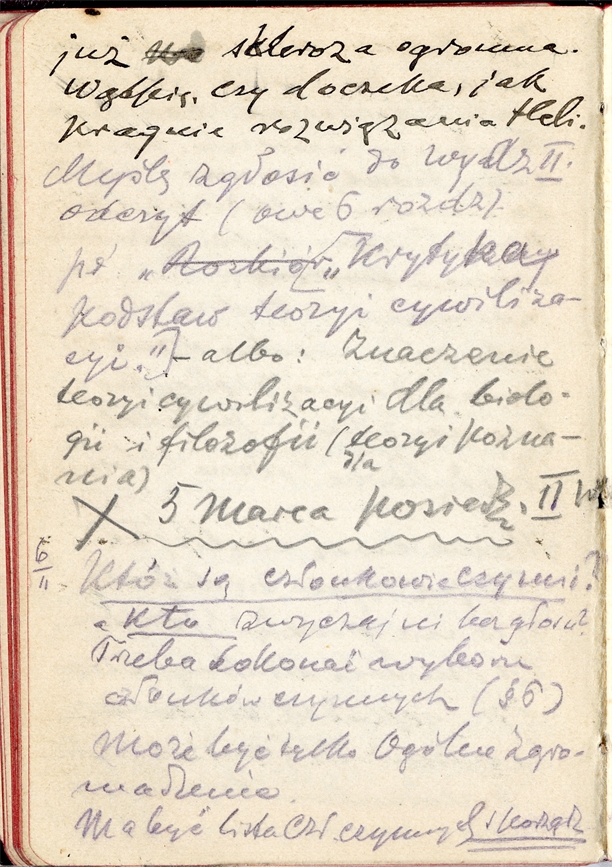 już skleroza ogromna.
Wątpię, czy doczeka, jak
pragnie rozwiązania
Myślę zgłosić do Wydz II.
odczyt (owe 6 rozdz)
pt „Rozbiór „Krytyka
podstaw teoryi cywiliza-
cyi." – albo: Znaczenie
teoryi cywilizacyi dla biolo-
gii i filozofii (teoryi pozna-
dla
nia)
X 5 Marca posiedz. II
6/II
Któż są członkowie czynni?
a Kto zwyczajni
Trzeba dokonać wyboru
członków czynnych (§6)
Może być tylko Ogólne Zgro-
madzenie.
Ma być lista Czł czynnych i porząd